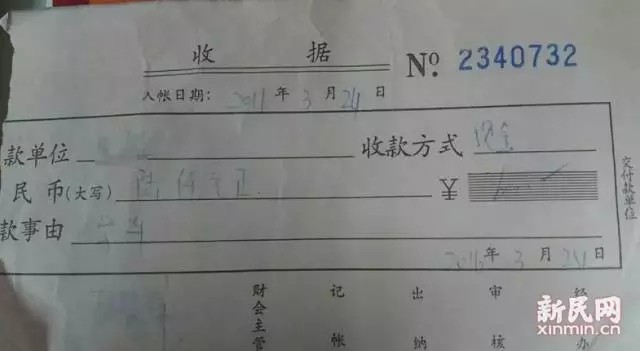 收 据
№ 2340732
入帐日期： 年 3 月 24 日
款单位 收款方式 现金
民 币(大写) 陆仟元正 ¥
款事由
年 3 月 24 日
财会主管 记帐 出纳 审核 经办
交付款单位
新民网
xinmin.cn